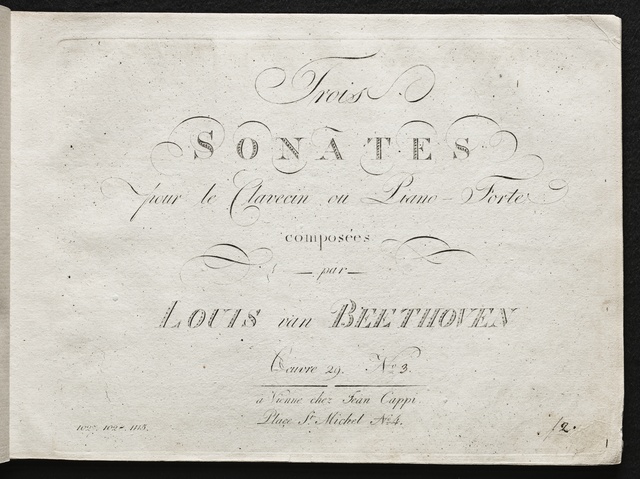 Trois
SONATES
pour le Clavecin ou Piano-Forte
composées
par
LOUIS van BEETHOVEN
Oeuvre 29. No 3.
à Vienne chez Jean Cappi
Place St Michel No 4.
1027. 1027. 1113.
12.